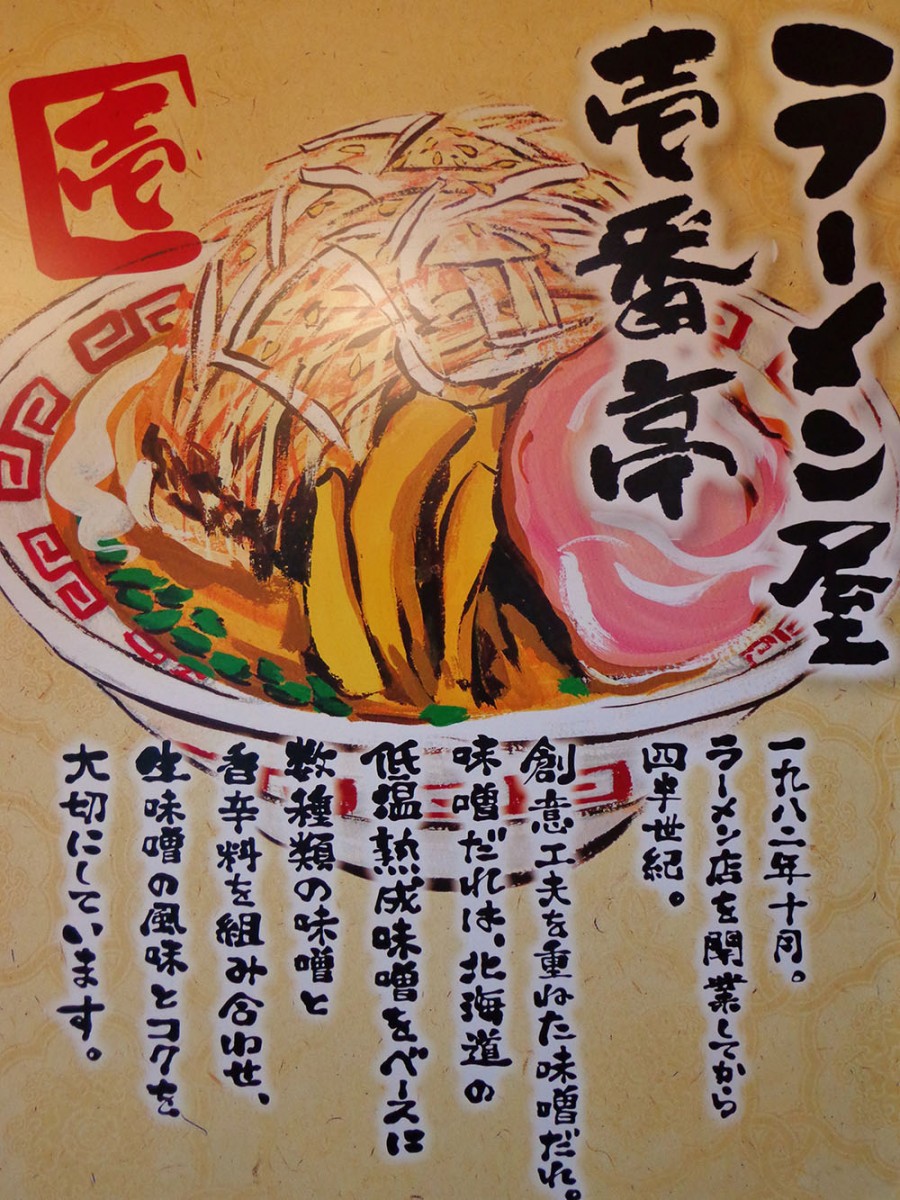 ラーメン屋
壱番亭
壱
一九八二年十月。
ラーメン店を開業してから
四半世紀。
創意工夫を重ねた味噌だれ。
味噌だれは、北海道の
低温熟成味噌をベースに
数種類の味噌と
香辛料を組み合わせ、
生味噌の風味とコクを
大切にしています。